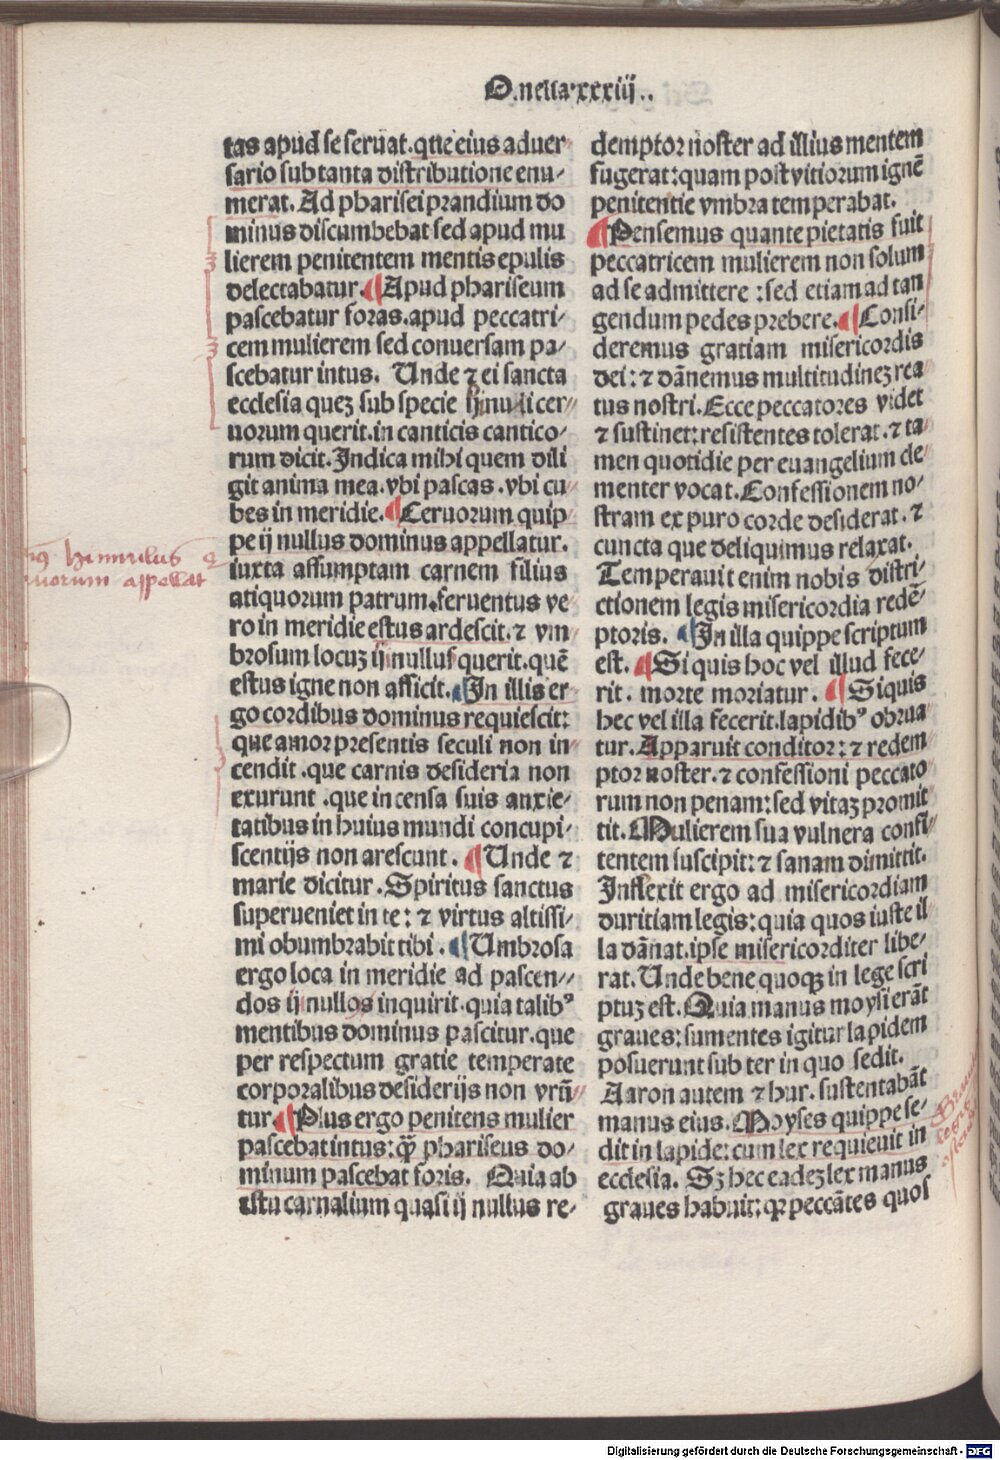 O.nelia.xxxiij..
tas apud se seruat.que eius aduer
sario sub tanta distributione enu/
merat. Ad pharisei prandium do
minus discumbebat sed apud mu
lierem penitentem mentis epulis
delectabatur. Apud phariseum
pascebatur foras.apud peccatri/
cem mulierem sed conuersam pa/
scebatur intus. Unde ⁊ ei sancta
ecclesia queꝫ sub specie ij nuli cer/
uorum querit.in canticis cantico/
rum dicit.Indica mihi quem dili
git anima mea.vbi pascas.vbi cu/
bes in meridie. Ceruorum quip/
pe ij nullus dominus appellatur.
iuxta assumptam carnem filius
atiquorum patrum.feruentus ve/
ro in meridie estus ardescit.⁊ vm
brosum locuꝫ ij nullus querit.quē
estus igne non afficit. In illis er/
go cordibus dominus requiescit:
que amor presentis seculi non in/
cendit.que carnis desideria non
exurunt.que incensa suis anxie/
tatibus in huius mundi concupi/
scentijs non arescunt. Unde ⁊
marie dicitur. Spiritus sanctus
superueniet in te: ⁊ virtus altissi/
mi obumbrabit tibi. Umbrosa
ergo loca in meridie ad pascen//
dos ij nullos inquirit.quia talibꝰ
mentibus dominus pascitur.que
per respectum gratie temperate
corporalibus desiderijs non vrū/
tur. Plus ergo penitens mulier
pascebat intus:q̄ꝫ phariseus do/
minum pascebat foris. Quia ab
estu carnalium quasi ij nullus re/
demptor noster ad illius mentem
fugerat:quam post vitiorum ignē
penitentie vmbra temperabat.
Pensemus quante pietatis fuit
peccatricem mulierem non solum
ad se admittere :sed etiam ad tan
gendum pedes prebere. Consi/
deremus gratiam misericordis
dei: ⁊ dānemus multitudineꝫ rea
tus nostri.Ecce peccatores videt
⁊ sustinet:resistentes tolerat.⁊ ta/
men quotidie per euangelium de/
menter vocat.Confessionem no/
stram ex puro corde desiderat. ⁊
cuncta que deliquimus relaxat.
Temperauit enim nobis distri/
ctionem legis misericordia redē/
ptoris. In illa quippe scriptum
est. Si quis hoc vel illud fece/
rit. morte moriatur. Si quis
hec vel illa fecerit.lapidibꝰ obrua
tur.Apparuit conditor: ⁊ redem
ptor noster.⁊ confessioni peccato
rum non penam:sed vitaꝫ promit
tit.Mulierem sua vulnera confi/
tentem suscipit: ⁊ sanam dimittit.
Inflexit ergo ad misericordiam
duritiam legis: quia quos iuste il/
la dānat.ipse misericorditer libe/
rat.Unde bene quoqꝫ in lege scri
ptuꝫ est. Quia manus moysi erāt
graues:sumentes igitur lapidem
posuerunt sub ter in quo sedit.
Aaron autem ⁊ hur. sustentabāt
manus eius. Moyses quippe se/
dit in lapide: cum lex requieuit in
ecclesia. Sꝫ hec eadeꝫ lex manus
graues habuit: qꝛ peccātes quos
hinnulus
uorum appellat
Digitalisierung gefördert durch die Deutsche Forschungsgemeinschaft - DFG